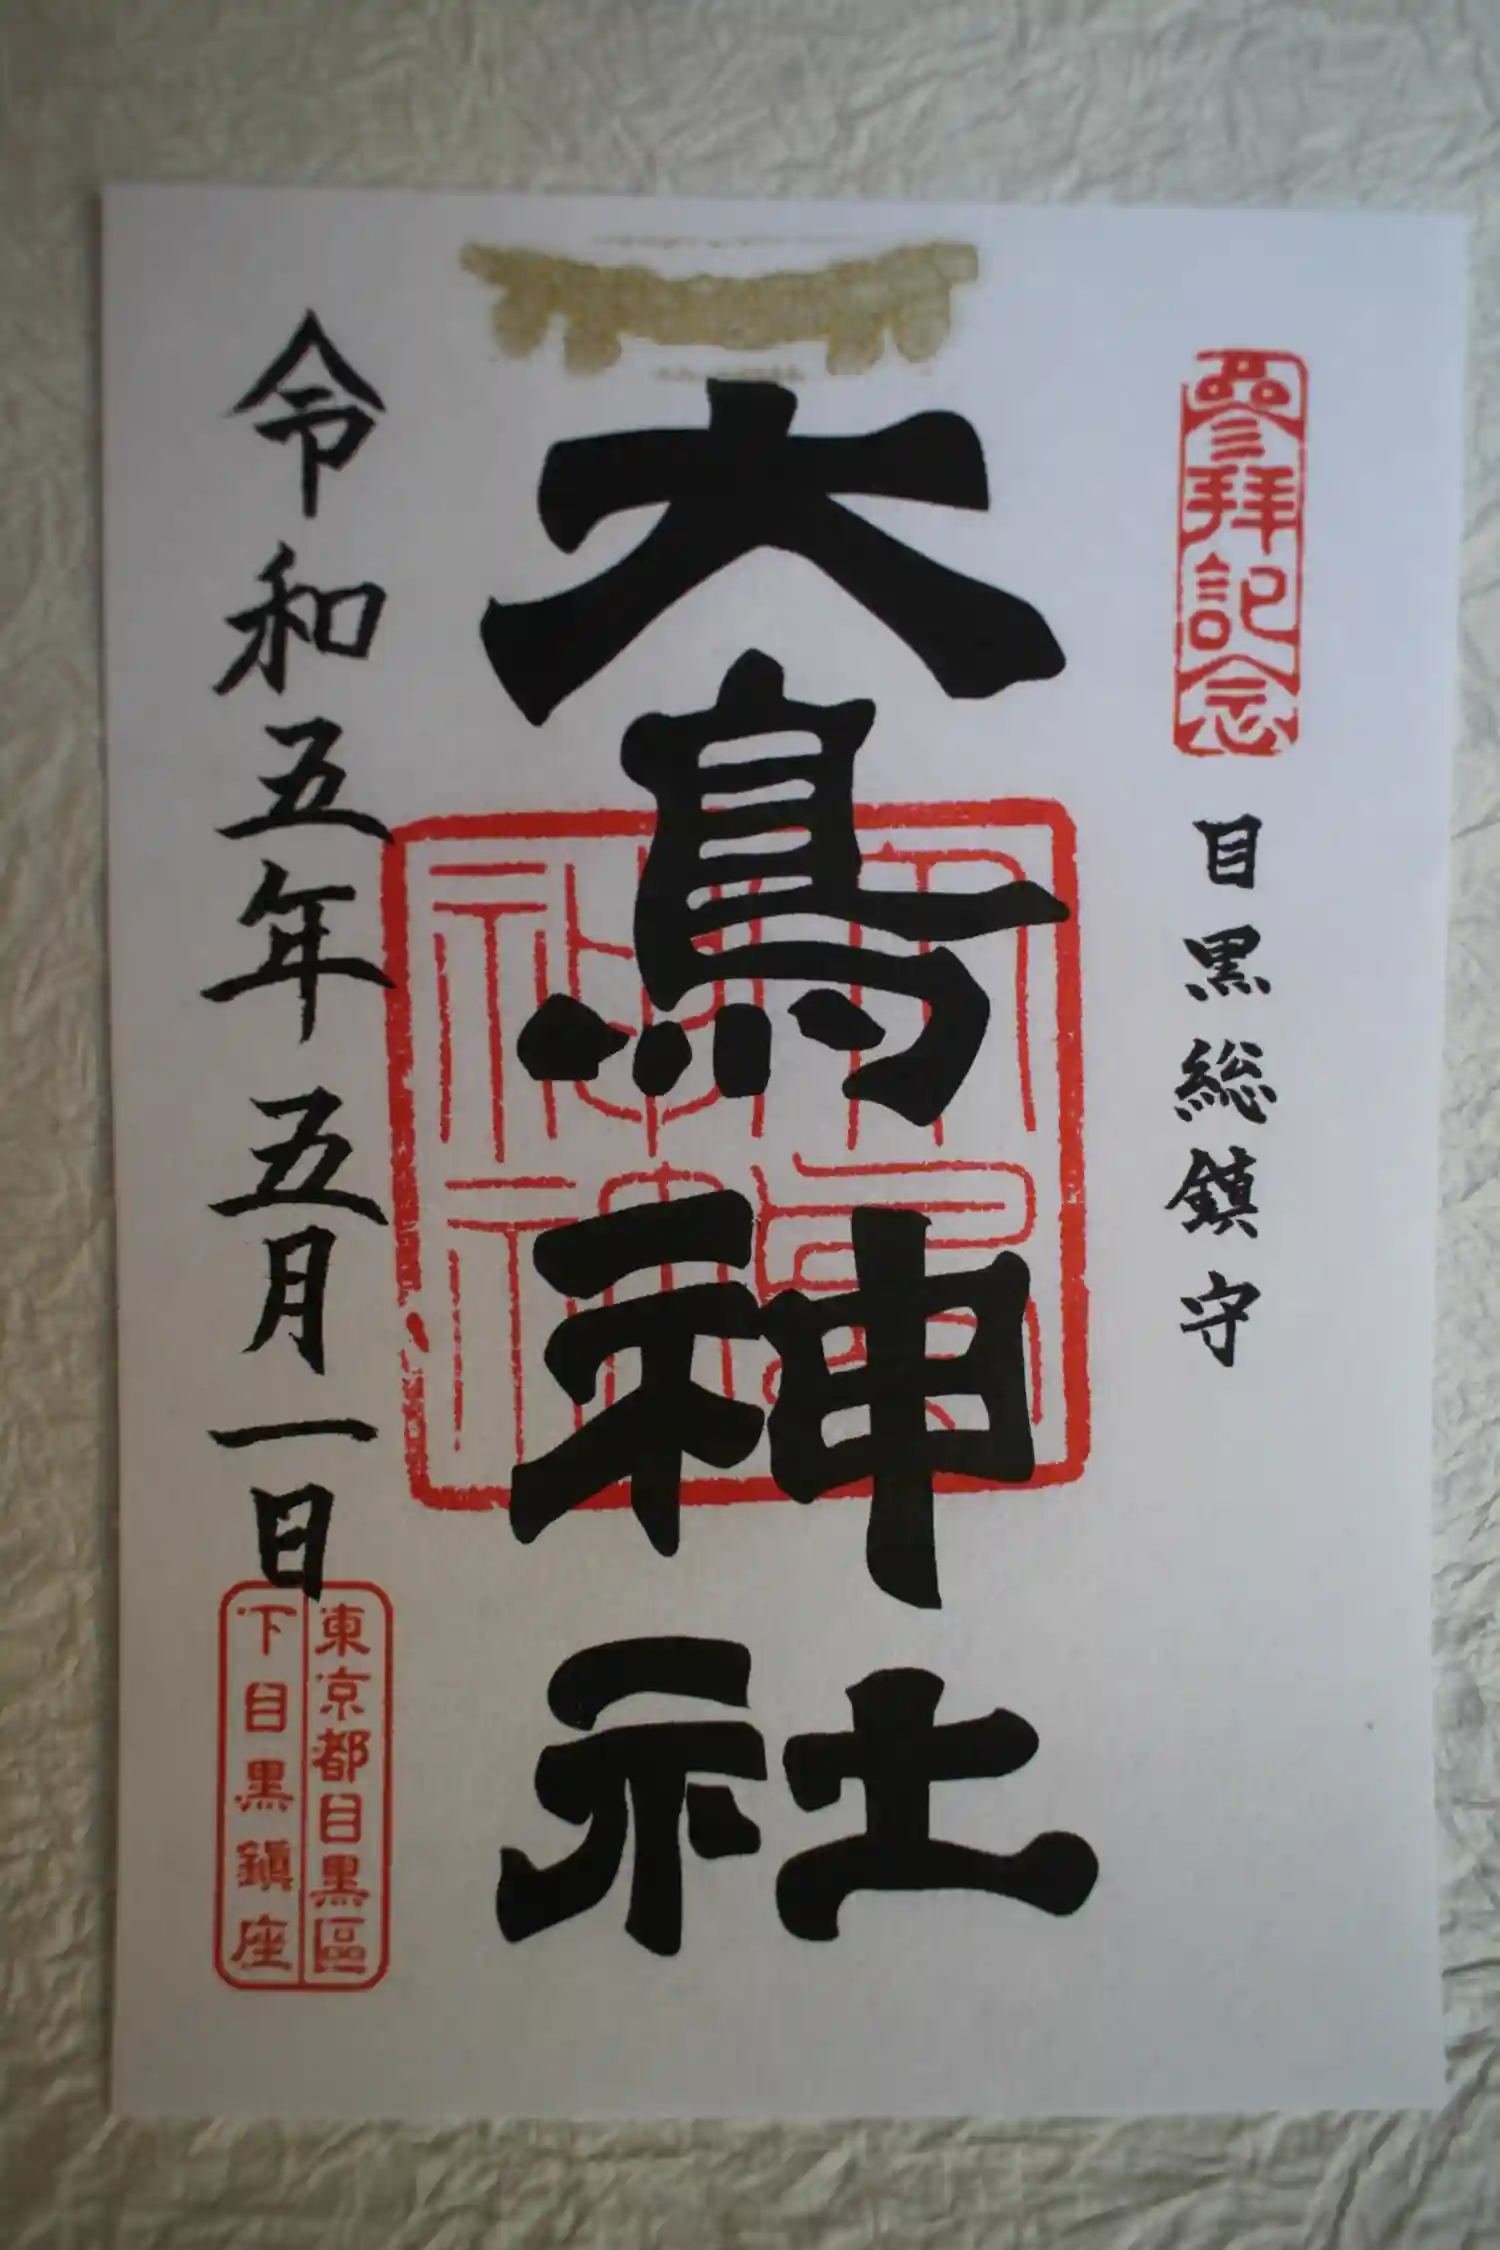 參拜記念
目黒総鎮守
大鳥神社
大鳥神社
令和五年五月一日
東京都目黒區
下目黒鎮座